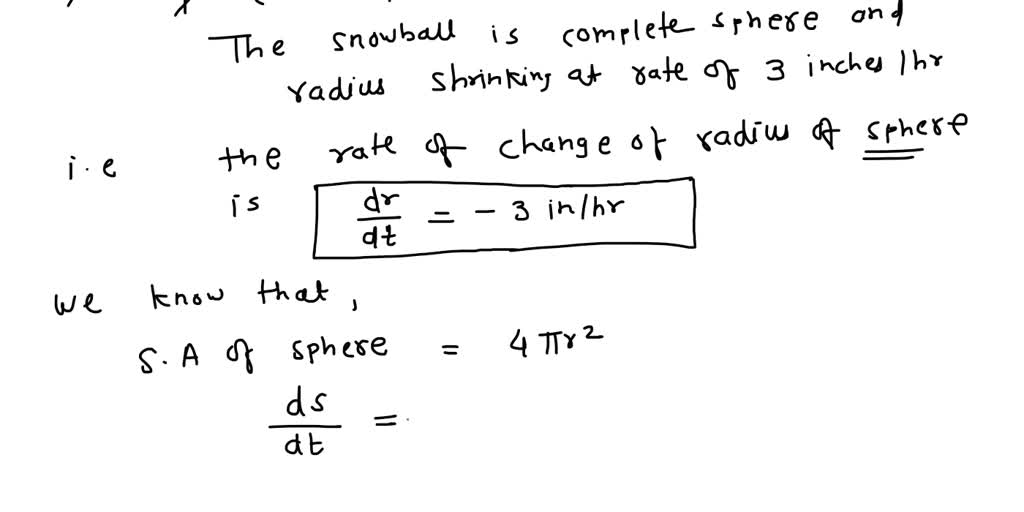 The snowball is complete sphere and
radius shrinking at rate of 3 inches/hr
i.e the rate of change of radius of sphere
is dr/dt = - 3 in/hr
we know that,
S.A of sphere = 4πr²
ds/dt =